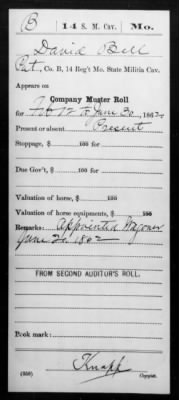 B 14 S. M. Cav. Mo.
David Bell
Pvt., Co. B, 14 Reg't Mo. State Militia Cav.
Appears on
Company Muster Roll
for Feb 12 to June 30, 1862.
Present or absent Present
Stoppage, $ 100 for
Due Gov't, $ 100 for
Valuation of horse, $ 100
Valuation of horse equipments, $ 100
Remarks: Appointed Wagoner
June 20 1862
FROM SECOND AUDITOR'S ROLL.
Book mark:
Knapp
(359) Copyist.